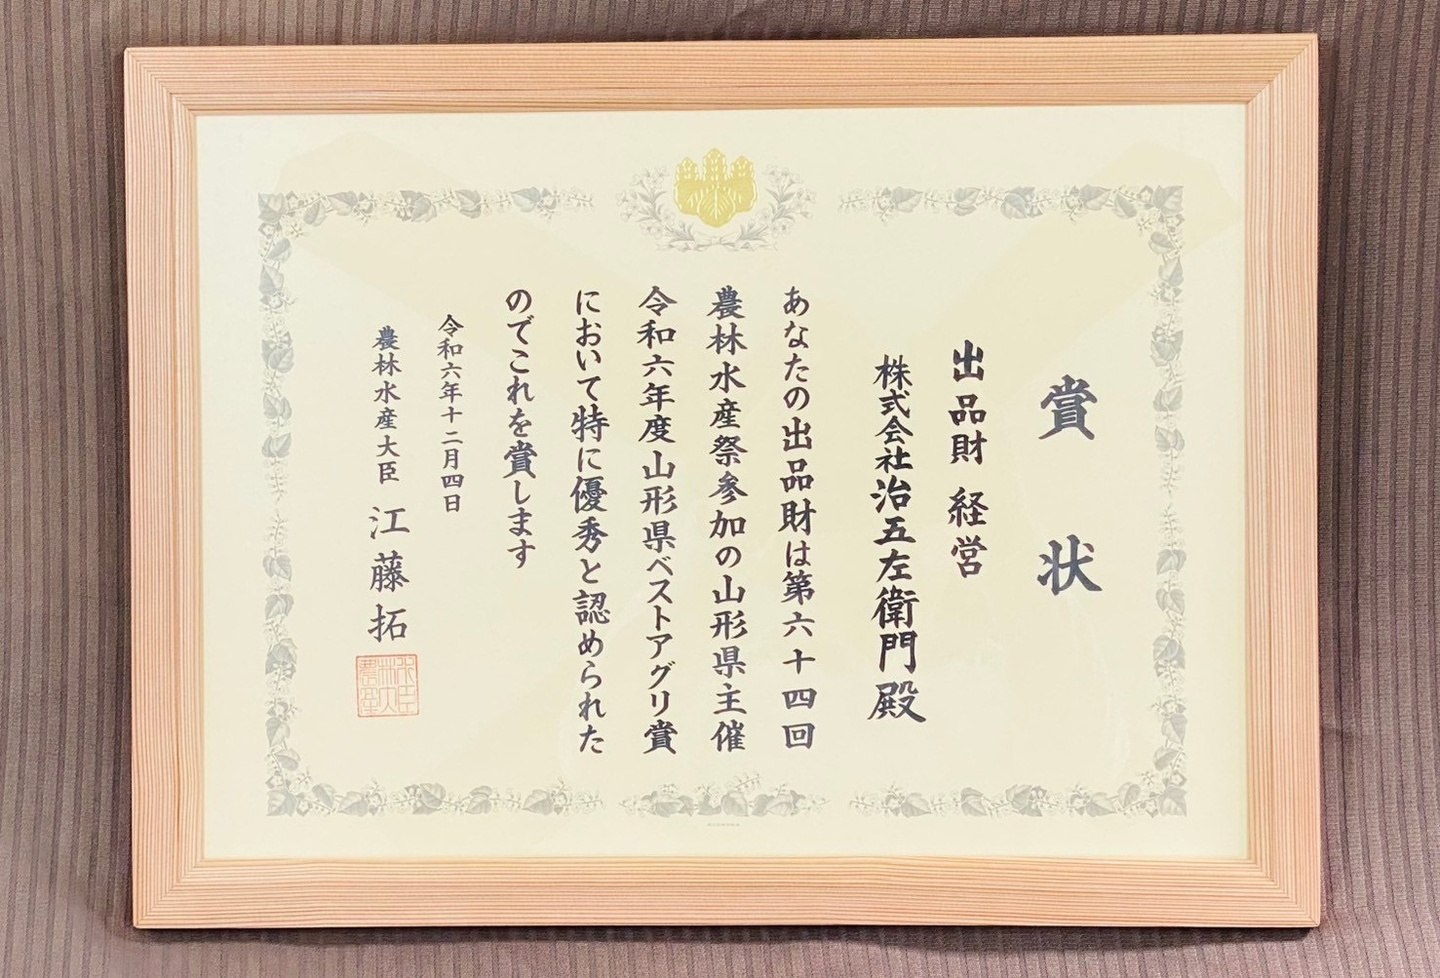 賞状
出品財 経営
株式会社治五左衛門殿
あなたの出品財は第六十四回
農林水産祭参加の山形県主催
令和六年度山形県ベストアグリ賞
において特に優秀と認められた
のでこれを賞します
令和六年十二月四日
農林水産大臣 江藤拓